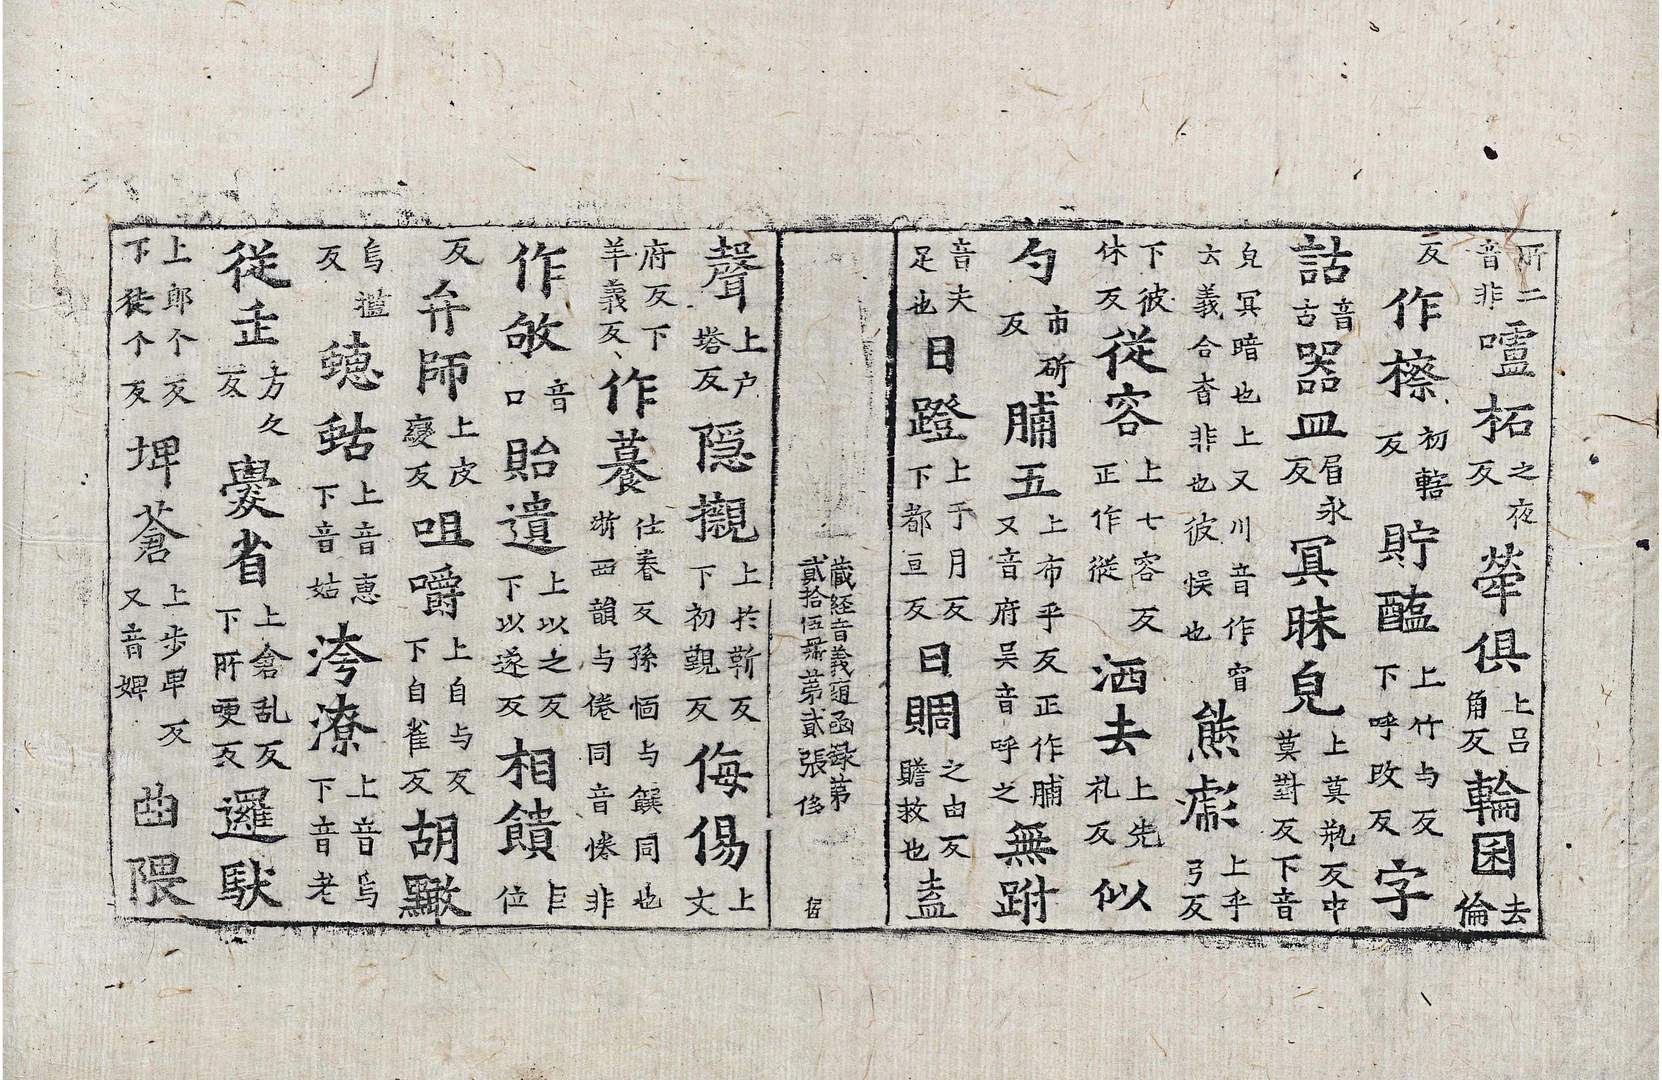 所二音非嚧柘之夜反犖俱上吕角反輪囷去倫
反作檫初轄反貯醞上竹与反下呼改反字
詁音古器皿眉永反冥昧皃上莫瓶反中莫對反下音
皃冥暗也上又川音作㝠六義合杳非也彼悮也熊彪上乎弓反
下彼休反從容上七容反正作從洒去上先礼反似
勺市斫反脯五上布乎反正作脯又音府吴音呼之無跗
音夫足也日蹬上于月反下都亘反日賙之由反贍救也盖
藏経音義随函録第貳拾伍册第貳張侈
宿
聲上户塔反隱㩳上於靳反下初覲反侮傷上文
府反下羊義反作養仕眷反孫愐与饌同也浙西韻与倦同音惓非
作敂音口貽遺上以之反下以遂反相饋巨位
反弁師上皮變反咀嚼上自与反下自雀反胡䮍
烏㯼反蟪蛄上音惠下音姑洿潦上音烏下音老
從𤣩方久反爨省上倉乱反下所哽反邏馱
上郎个反下徒个反埤蒼上步卑反又音婢凾隈